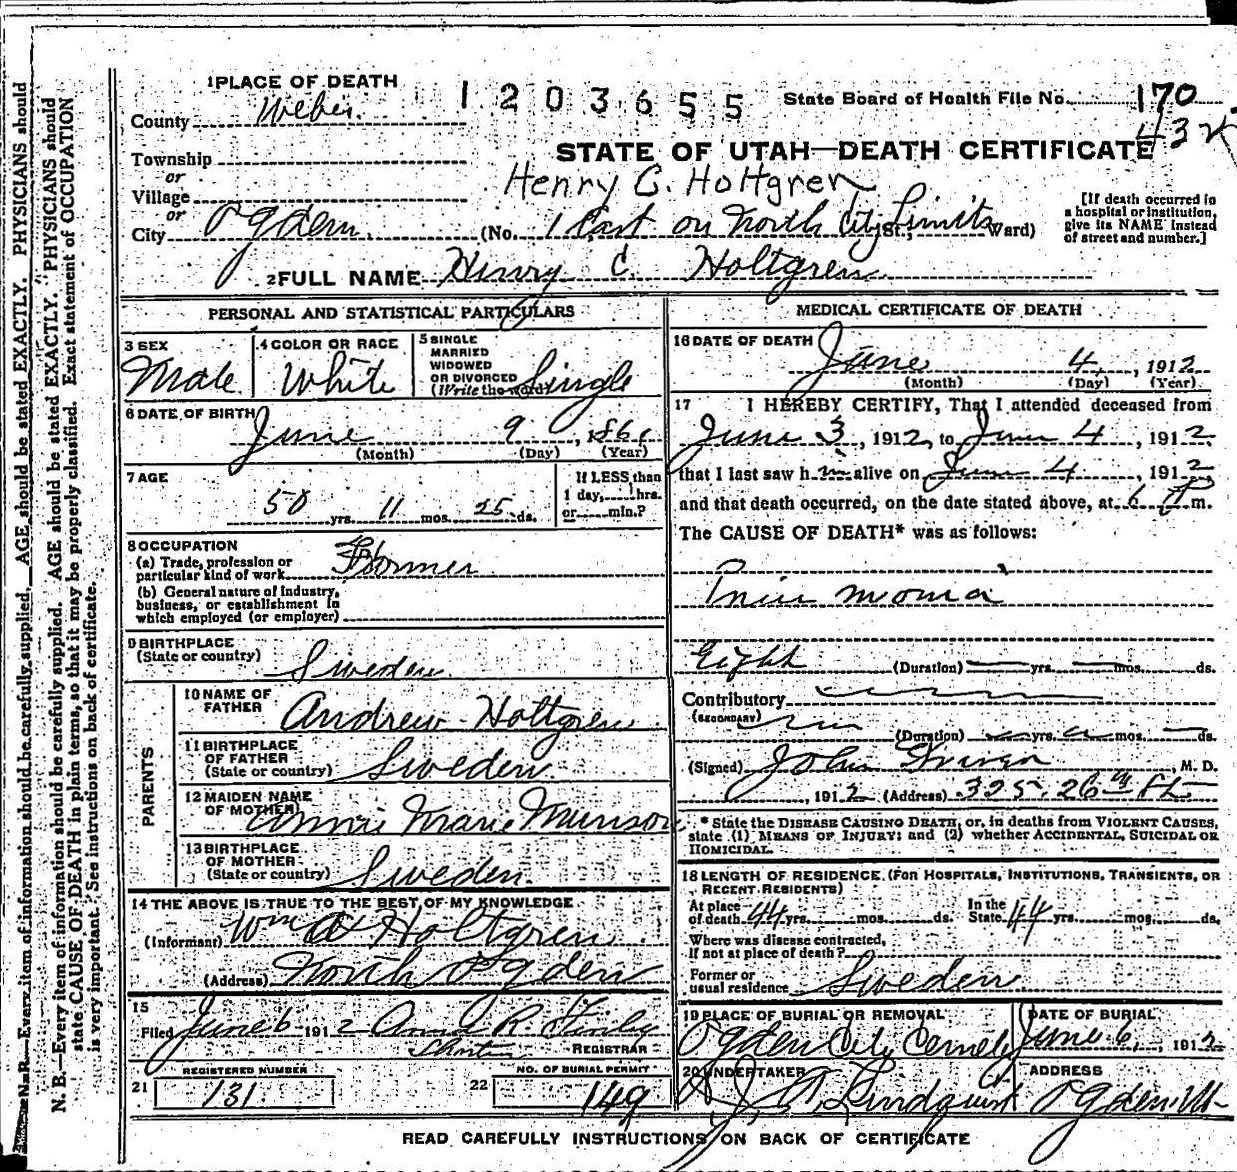 N. B.—Every item of information should be carefully supplied. AGE should be stated EXACTLY. PHYSICIANS should
N. B.—Every item of information should be carefully supplied. AGE should be stated EXACTLY. PHYSICIANS should
state CAUSE OF DEATH in plain terms, so that it may be properly classified. Exact statement of OCCUPATION
is very important. See instructions on back of certificate.
1 PLACE OF DEATH
1203655
State Board of Health File No. 170
County Weber
43
Township
STATE OF UTAH—DEATH CERTIFICATE
or
Village
Henry C. Holtgren
or
City Ogden (No. 1 East on North City St.; Limits Ward)
[If death occurred in
a hospital or institution,
give its NAME instead
of street and number.]
2 FULL NAME Henry C. Holtgren
PERSONAL AND STATISTICAL PARTICULARS
3 SEX
Male
4 COLOR OR RACE
White
5 SINGLE
MARRIED
WIDOWED
OR DIVORCED
(Write the word)
Single
6 DATE OF BIRTH
June 9, 1861
(Month) (Day) (Year)
7 AGE
50 yrs. 11 mos. 25 ds.
If LESS than
1 day, hrs.
or min.?
8 OCCUPATION
(a) Trade, profession or
particular kind of work Farmer
(b) General nature of Industry,
business, or establishment in
which employed (or employer)
9 BIRTHPLACE
(State or country) Sweden
PARENTS
10 NAME OF
FATHER Andrew Holtgren
11 BIRTHPLACE
OF FATHER
(State or country) Sweden
12 MAIDEN NAME
OF MOTHER Annie Marie Munson
13 BIRTHPLACE
OF MOTHER
(State or country) Sweden.
14 THE ABOVE IS TRUE TO THE BEST OF MY KNOWLEDGE
(Informant) Wm A Holtgren
(Address) North Ogden
15
Filed June 6 1912 Anna R. Finley
REGISTRAR
21
REGISTERED NUMBER
131
22
NO. OF BURIAL PERMIT
149
MEDICAL CERTIFICATE OF DEATH
16 DATE OF DEATH
June 4, 1912
(Month) (Day) (Year)
17 I HEREBY CERTIFY, That I attended deceased from
June 3, 1912, to June 4, 1912.
that I last saw him alive on June 4 1912
and that death occurred, on the date stated above, at 6 P m.
The CAUSE OF DEATH* was as follows:
Pneumonia
Eight (Duration) yrs. mos. ds.
Contributory
(SECONDARY)
(Duration) yrs. mos. ds.
(Signed) John Driver, M. D.
, 1912 (Address) 325. 26th St
* State the DISEASE CAUSING DEATH, or, in deaths from VIOLENT CAUSES,
state (1) MEANS OF INJURY; and (2) whether ACCIDENTAL, SUICIDAL OR
HOMICIDAL.
18 LENGTH OF RESIDENCE. (FOR HOSPITALS, INSTITUTIONS, TRANSIENTS, OR
RECENT RESIDENTS)
At place
of death 44 yrs. mos. ds.
In the
State 44 yrs. mos. ds.
Where was disease contracted,
If not at place of death?
Former or
usual residence Sweden
19 PLACE OF BURIAL OR REMOVAL
Ogden City Cemety
DATE OF BURIAL
June 6, 1912
20 UNDERTAKER
Lindquist
ADDRESS
Ogden Ut
READ CAREFULLY INSTRUCTIONS ON BACK OF CERTIFICATE